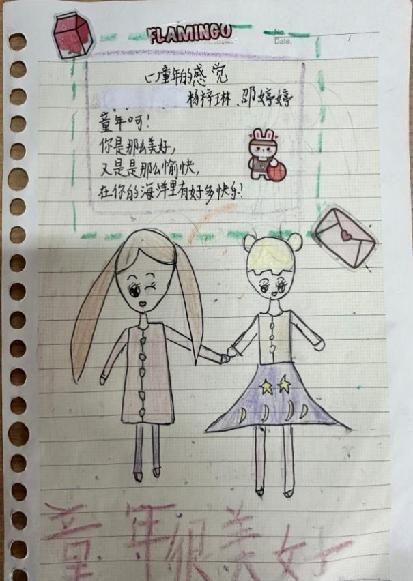 FLAMINGO
No.
Date.
童年的感觉
杨梓琳 邵婷婷
童年呵!
你是那么美好,
又是是那么愉快,
在你的海洋里有好多快乐!
童年很美好